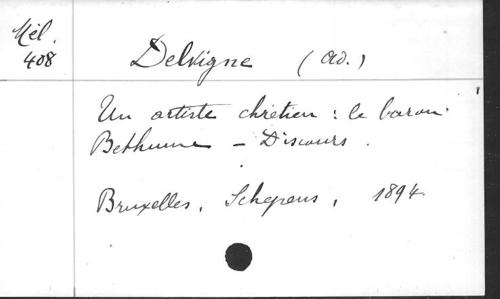 Mél.
408
Delvigne (Ad.)
Un artiste chrétien : le baron
Bethune - Discours.
Bruxelles, Schepens, 1894